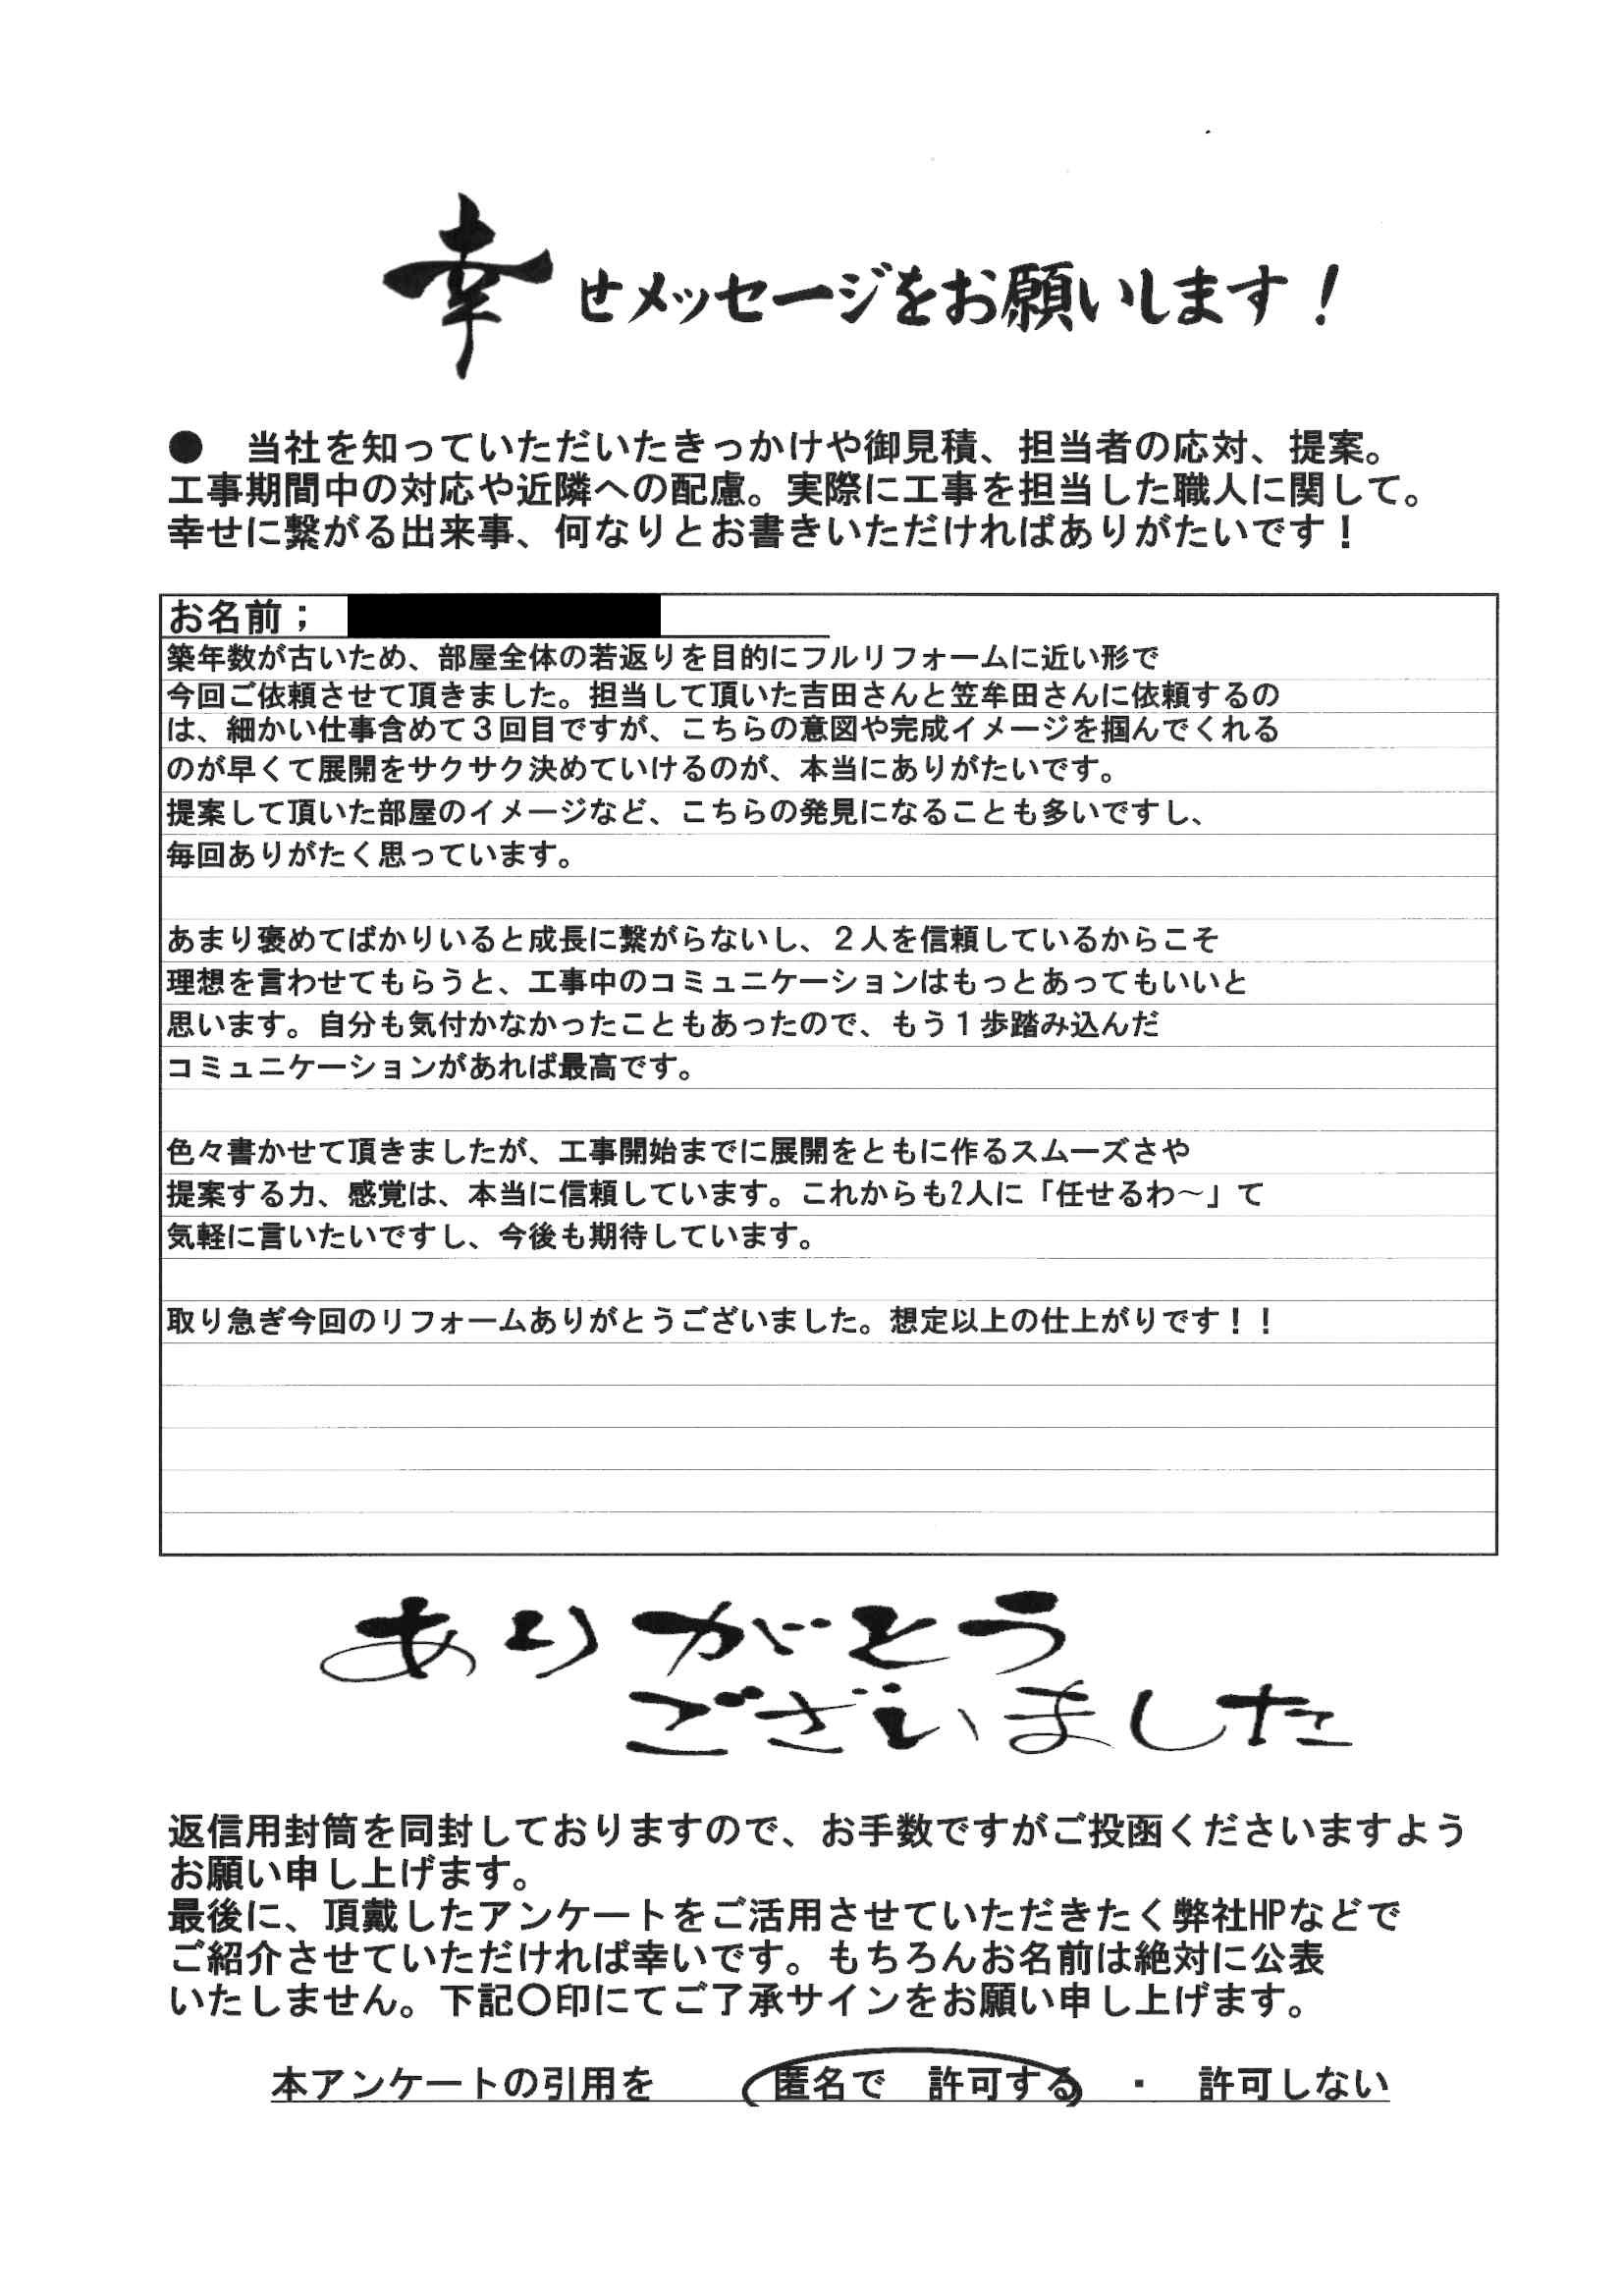 幸せメッセージをお願いします！
●　当社を知っていただいたきっかけや御見積、担当者の応対、提案。
工事期間中の対応や近隣への配慮。実際に工事を担当した職人に関して。
幸せに繋がる出来事、何なりとお書きいただければありがたいです！
お名前；
築年数が古いため、部屋全体の若返りを目的にフルリフォームに近い形で
今回ご依頼させて頂きました。担当して頂いた吉田さんと笠牟田さんに依頼するの
は、細かい仕事含めて３回目ですが、こちらの意図や完成イメージを掴んでくれる
のが早くて展開をサクサク決めていけるのが、本当にありがたいです。
提案して頂いた部屋のイメージなど、こちらの発見になることも多いですし、
毎回ありがたく思っています。
あまり褒めてばかりいると成長に繋がらないし、２人を信頼しているからこそ
理想を言わせてもらうと、工事中のコミュニケーションはもっとあってもいいと
思います。自分も気付かなかったこともあったので、もう１歩踏み込んだ
コミュニケーションがあれば最高です。
色々書かせて頂きましたが、工事開始までに展開をともに作るスムーズさや
提案する力、感覚は、本当に信頼しています。これからも2人に「任せるわ～」て
気軽に言いたいですし、今後も期待しています。
取り急ぎ今回のリフォームありがとうございました。想定以上の仕上がりです！！
ありがとう
ございました
返信用封筒を同封しておりますので、お手数ですがご投函くださいますよう
お願い申し上げます。
最後に、頂戴したアンケートをご活用させていただきたく弊社HPなどで
ご紹介させていただければ幸いです。もちろんお名前は絶対に公表
いたしません。下記〇印にてご了承サインをお願い申し上げます。
本アンケートの引用を　　匿名で　許可する　・　許可しない